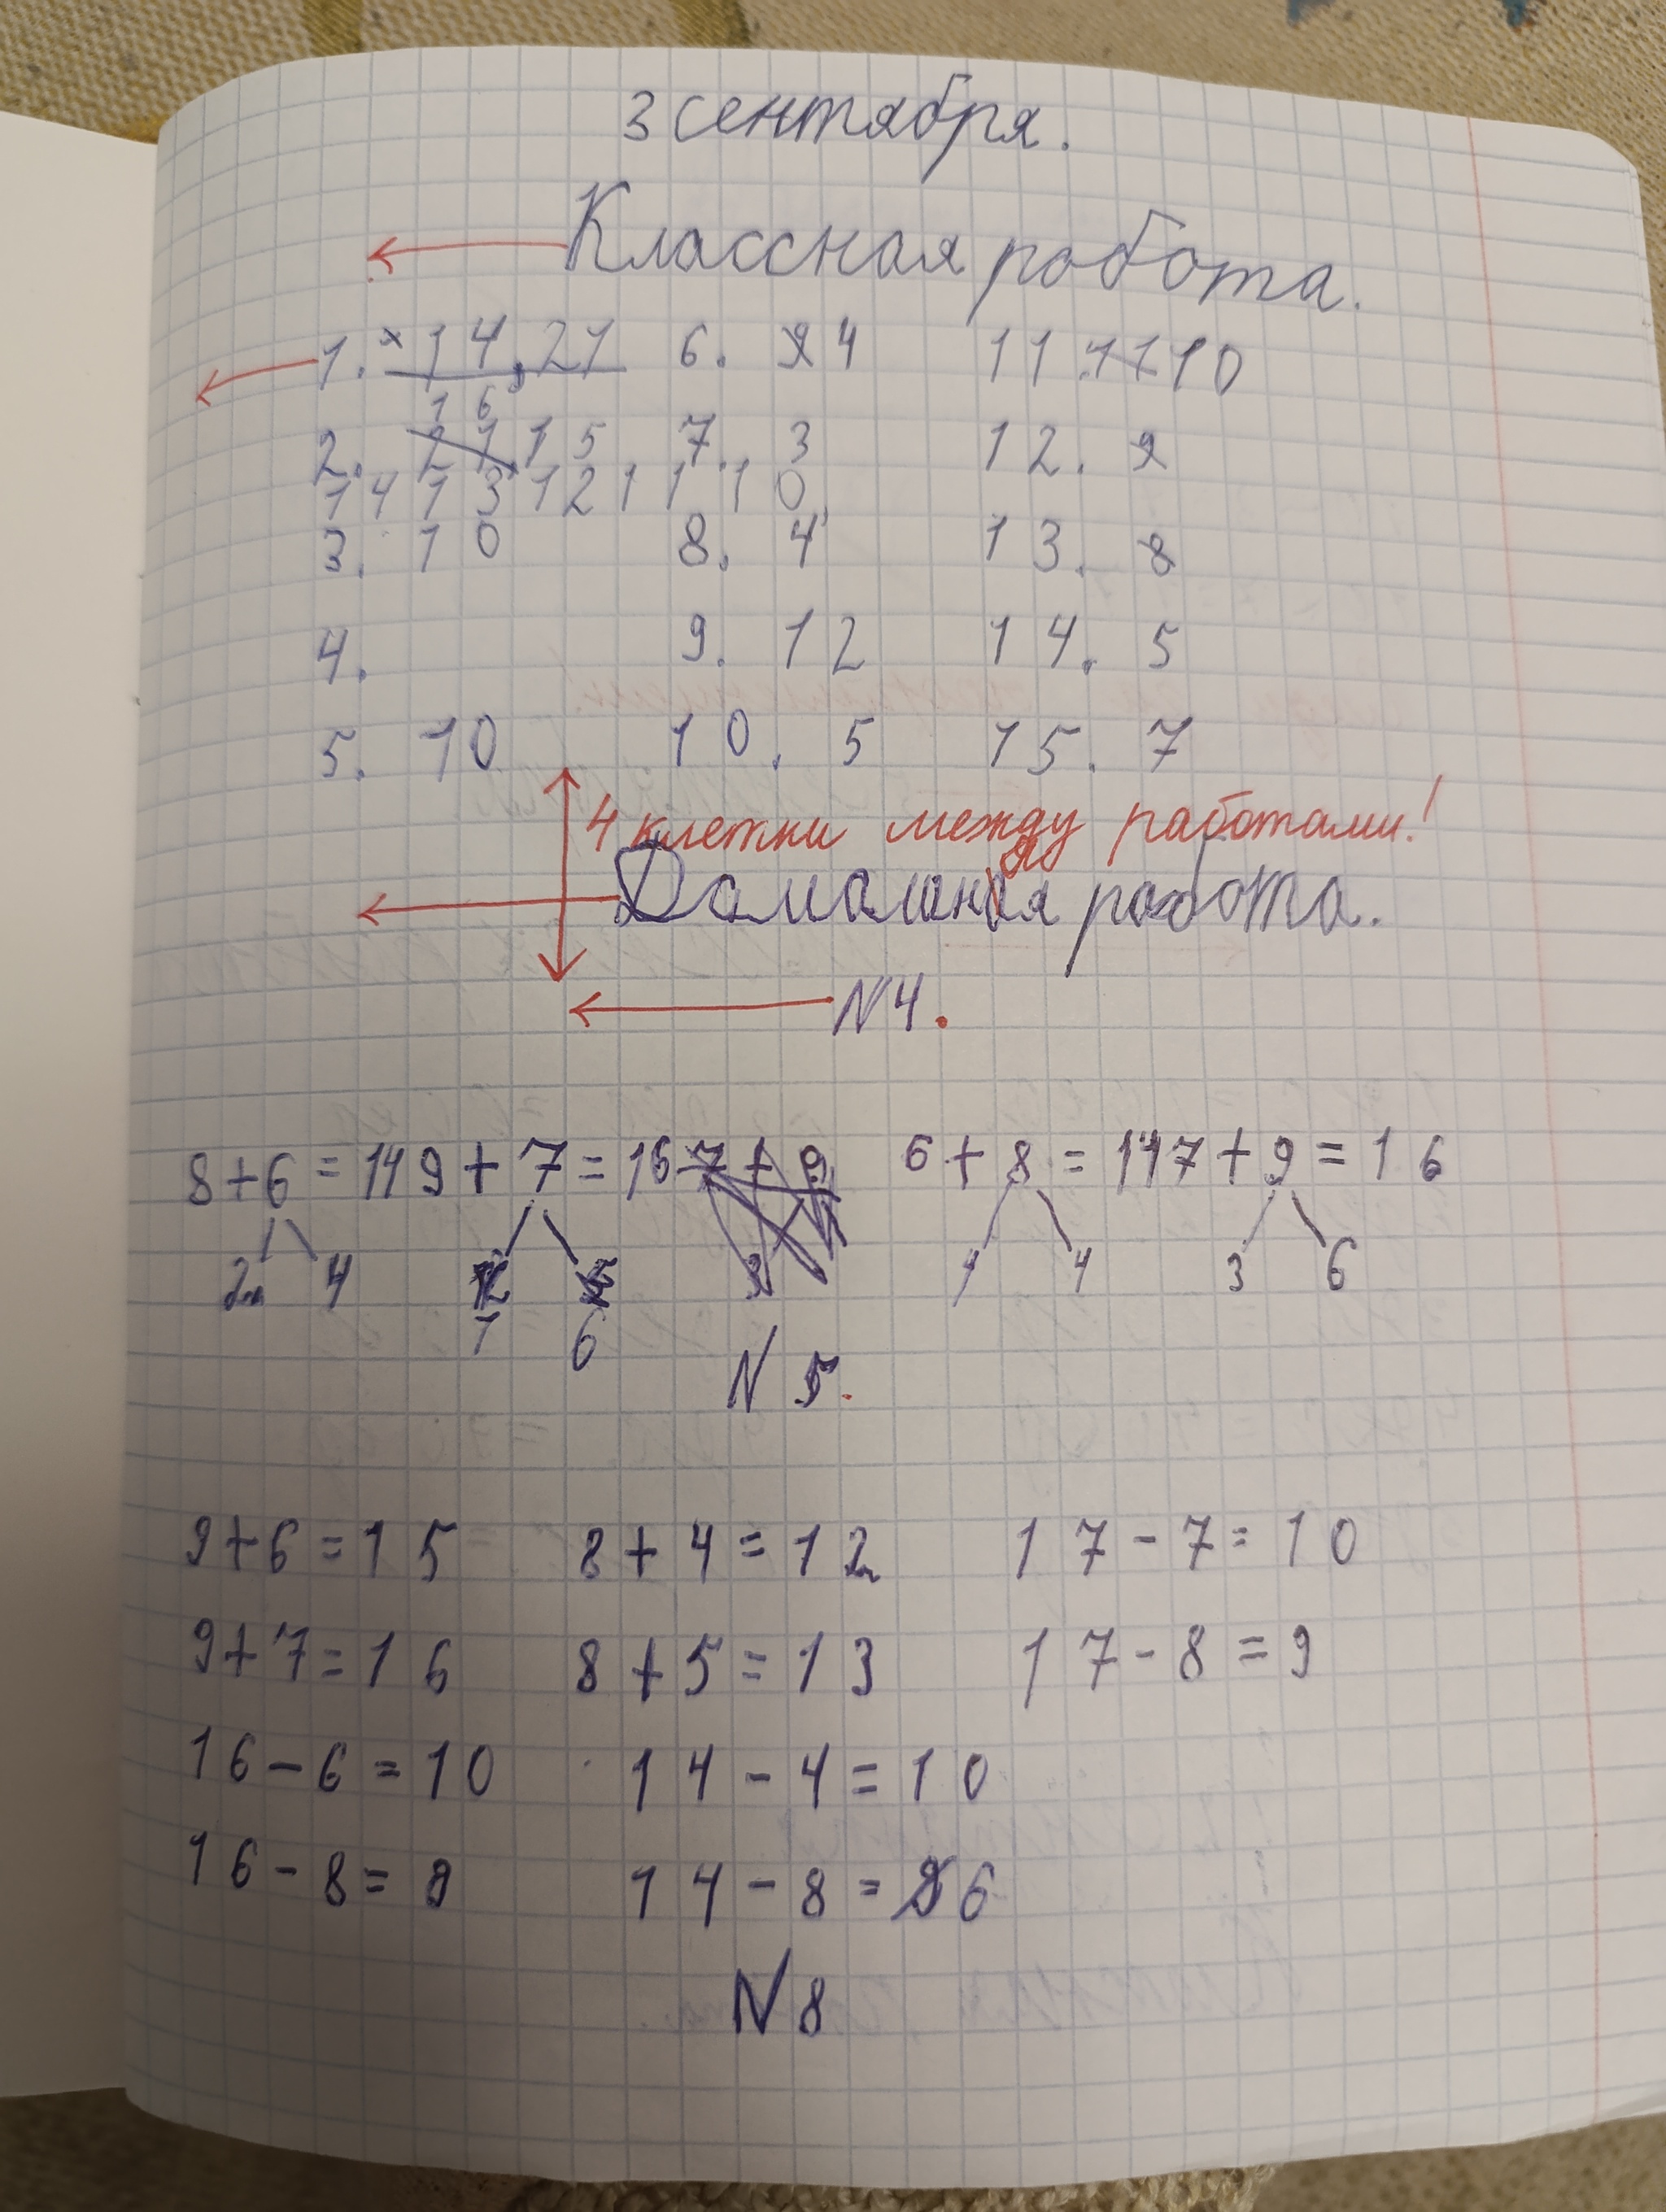 3 сентября.
Классная работа.
1. 14,21 6. 4 11. 11 10
1 6
2. 21, 1 5 7. 3 12. 9
1 4 1 3 1 2 1 1 1 0
3. 1 0 8. 4 13. 8
4. 9. 12 14. 5
5. 10 10. 5 15. 7
4 клетки между работами!
Домашняя работа.
N4.
8+6=14 9+7=16 7+9 6+8=14 7+9=16
2 4 3 4 3 6
1 6
N 5.
9+6=15 8+4=12 17-7=10
9+7=16 8+5=13 17-8=9
16-6=10 14-4=10
16-8= 14-8=6
N 8